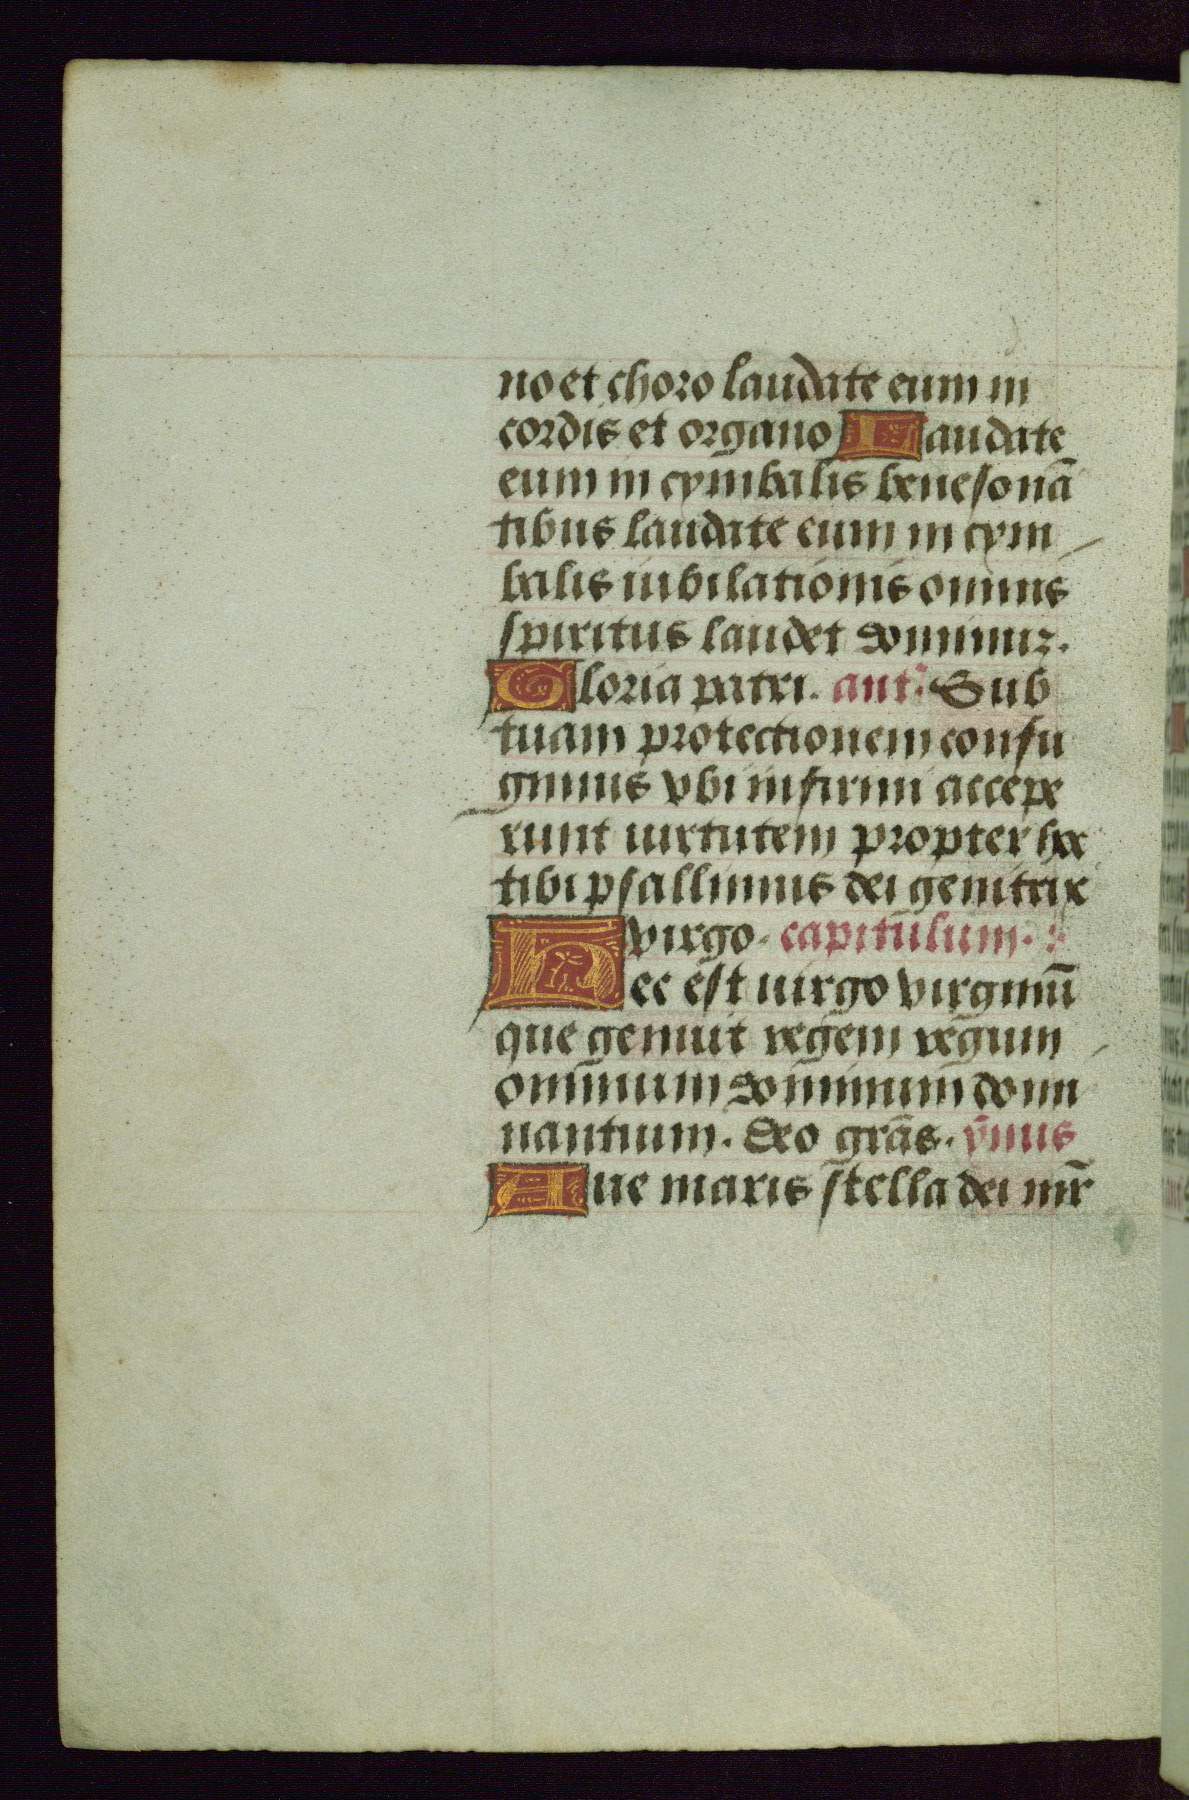 no et choro laudate eum in
cordis et organo Laudate
eum in cymbalis benesonā
tibus laudate eum in cym
balis iubilationis omnis
spiritus laudet dominuꝫ.
Gloria patri. ant᷑. Sub
tuam protectionem confu
gimus vbi infirmi accepe
runt uirtutem propter hoc
tibi psallimus dei genitrix
virgo. capitulum.
Hec est uirgo virginū
que genuit regem regum
omnium dominum domi
nantium. Deo grās. ȳmus
Aue maris stella dei mr̄